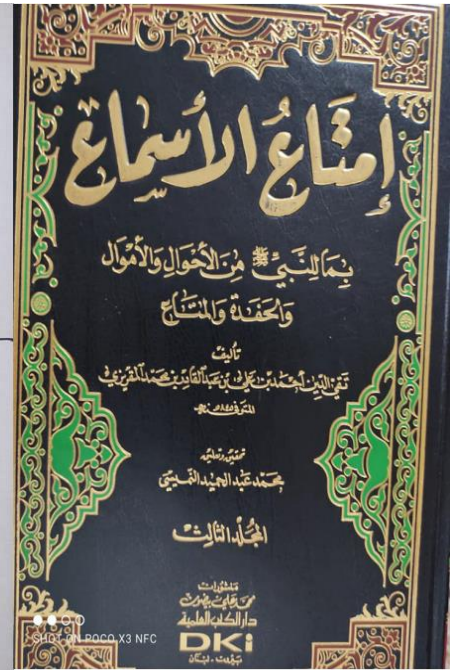 إِمْتَاعُ الأَسْمَاعِ
بِمَا لِلنَّبِيِّ ﷺ مِنَ الأَحْوَالِ وَالأَمْوَالِ
وَالحَفَدَةِ وَالمَتَاعِ
تأليف
تقي الدين أحمد بن علي بن عبد القادر بن محمد المقريزي
المتوفى ٨٤٥ هـ
تحقيق وتعليق
محمد عبد الحميد النميسي
المجلد الثالث
منشورات
محمد علي بيضون
دار الكتب العلمية
DKi
بيروت - لبنان
SHOT ON POCO X3 NFC